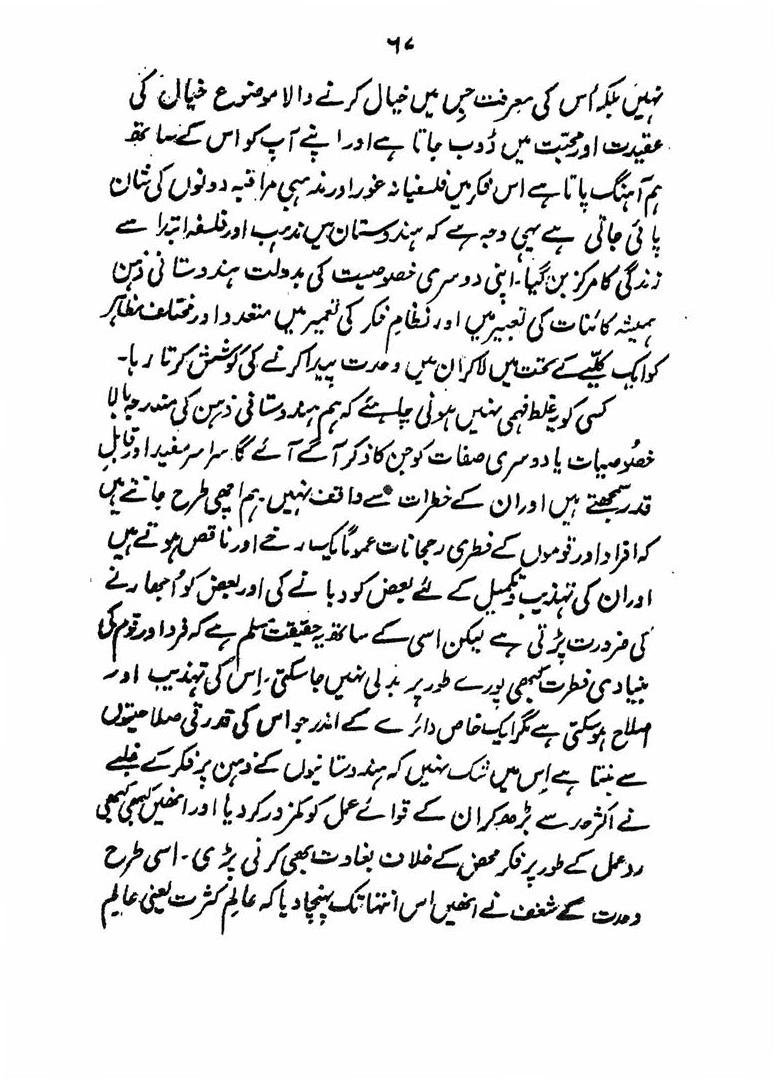 ۶۷
نہیں بلکہ اُس کی معرفت جس میں خیال کرنے والا موضوع خیال کی
عقیدت اور محبت میں ڈوب جاتا ہے اور اپنے آپ کو اس کے ساتھ
ہم آہنگ پاتا ہے اس فکر میں فلسفیانہ غور اور مذہبی مراقبہ دونوں کی شان
پائی جاتی ہے یہی وجہ ہے کہ ہندوستان میں مذہب اور فلسفہ ابتدا سے
زندگی کا مرکز بن گیا۔ اپنی دوسری خصوصیت کی بدولت ہندوستانی ذہن
ہمیشہ کائنات کی تعبیر میں اور نظامِ فکر کی تعمیر میں متعدد اور مختلف مظاہر
کو ایک کلیے کے تحت میں لا کر ان میں وحدت پیدا کرنے کی کوشش کرتا رہا۔
کسی کو یہ غلط فہمی نہیں ہونی چاہئے کہ ہم ہندوستانی ذہن کی مندرجہ بالا
خصُوصیات یا دوسری صفات کو جن کا ذکر آگے آئے گا سراسر مفید اور قابلِ
قدر سمجھتے ہیں اور ان کے خطرات سے واقف نہیں۔ ہم اچھی طرح جانتے ہیں
کہ افراد اور قوموں کے فطری رجحانات عموماً یک رخے اور ناقص ہوتے ہیں
اور ان کی تہذیب و تکمیل کے لئے بعض کو دبانے کی اور بعض کو اُبھارنے
کی ضرورت پڑتی ہے لیکن اسی کے ساتھ یہ حقیقت مسلم ہے کہ فرد اور قوم کی
بنیادی فطرت کبھی پورے طور پر بدلی نہیں جا سکتی۔ اِس کی تہذیب اور
اصلاح ہو سکتی ہے مگر ایک خاص دائرے کے اندر جو اس کی قدرتی صلاحیتوں
سے بنتا ہے اِس میں شک نہیں کہ ہندوستانیوں کے ذہن پر فکر کے غلبے
نے اکثر حد سے بڑھ کر ان کے قوائے عمل کو کمزور کر دیا اور انھیں کبھی کبھی
ردعمل کے طور پر فکر محض کے خلاف بغاوت بھی کرنی پڑی۔ اسی طرح
وحدت کے شغف نے انھیں اس انتہا تک پہنچا دیا کہ عالمِ کثرت یعنی عالمِ